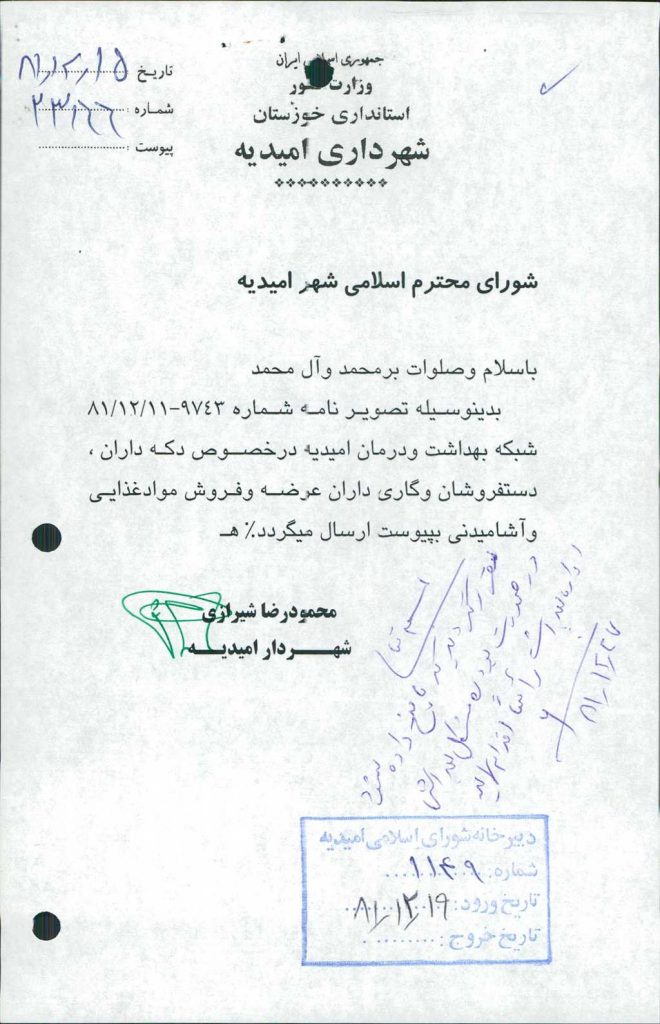 جمهوری اسلامی ایران
وزارت کشور
استانداری خوزستان
شهرداری امیدیه
تاریخ ۸۱/۱۲/۱۵
شماره : ۲۳۱۶۶
پیوست :
شورای محترم اسلامی شهر امیدیه
باسلام وصلوات برمحمد وآل محمد
بدینوسیله تصویر نامه شماره ۹۷۴۳-۸۱/۱۲/۱۱
شبکه بهداشت ودرمان امیدیه درخصوص دکه داران ،
دستفروشان وگاری داران عرضه وفروش موادغذایی
وآشامیدنی بپیوست ارسال میگردد٪ هـ
محمودرضا شیرازی
شهردار امیدیه
داده شود
۸۱/۱۲/۲۷
دبیرخانه شورای اسلامی امیدیه
شماره: ۱۱۴۹
تاریخ ورود: ۸۱/۱۲/۱۹
تاریخ خروج :